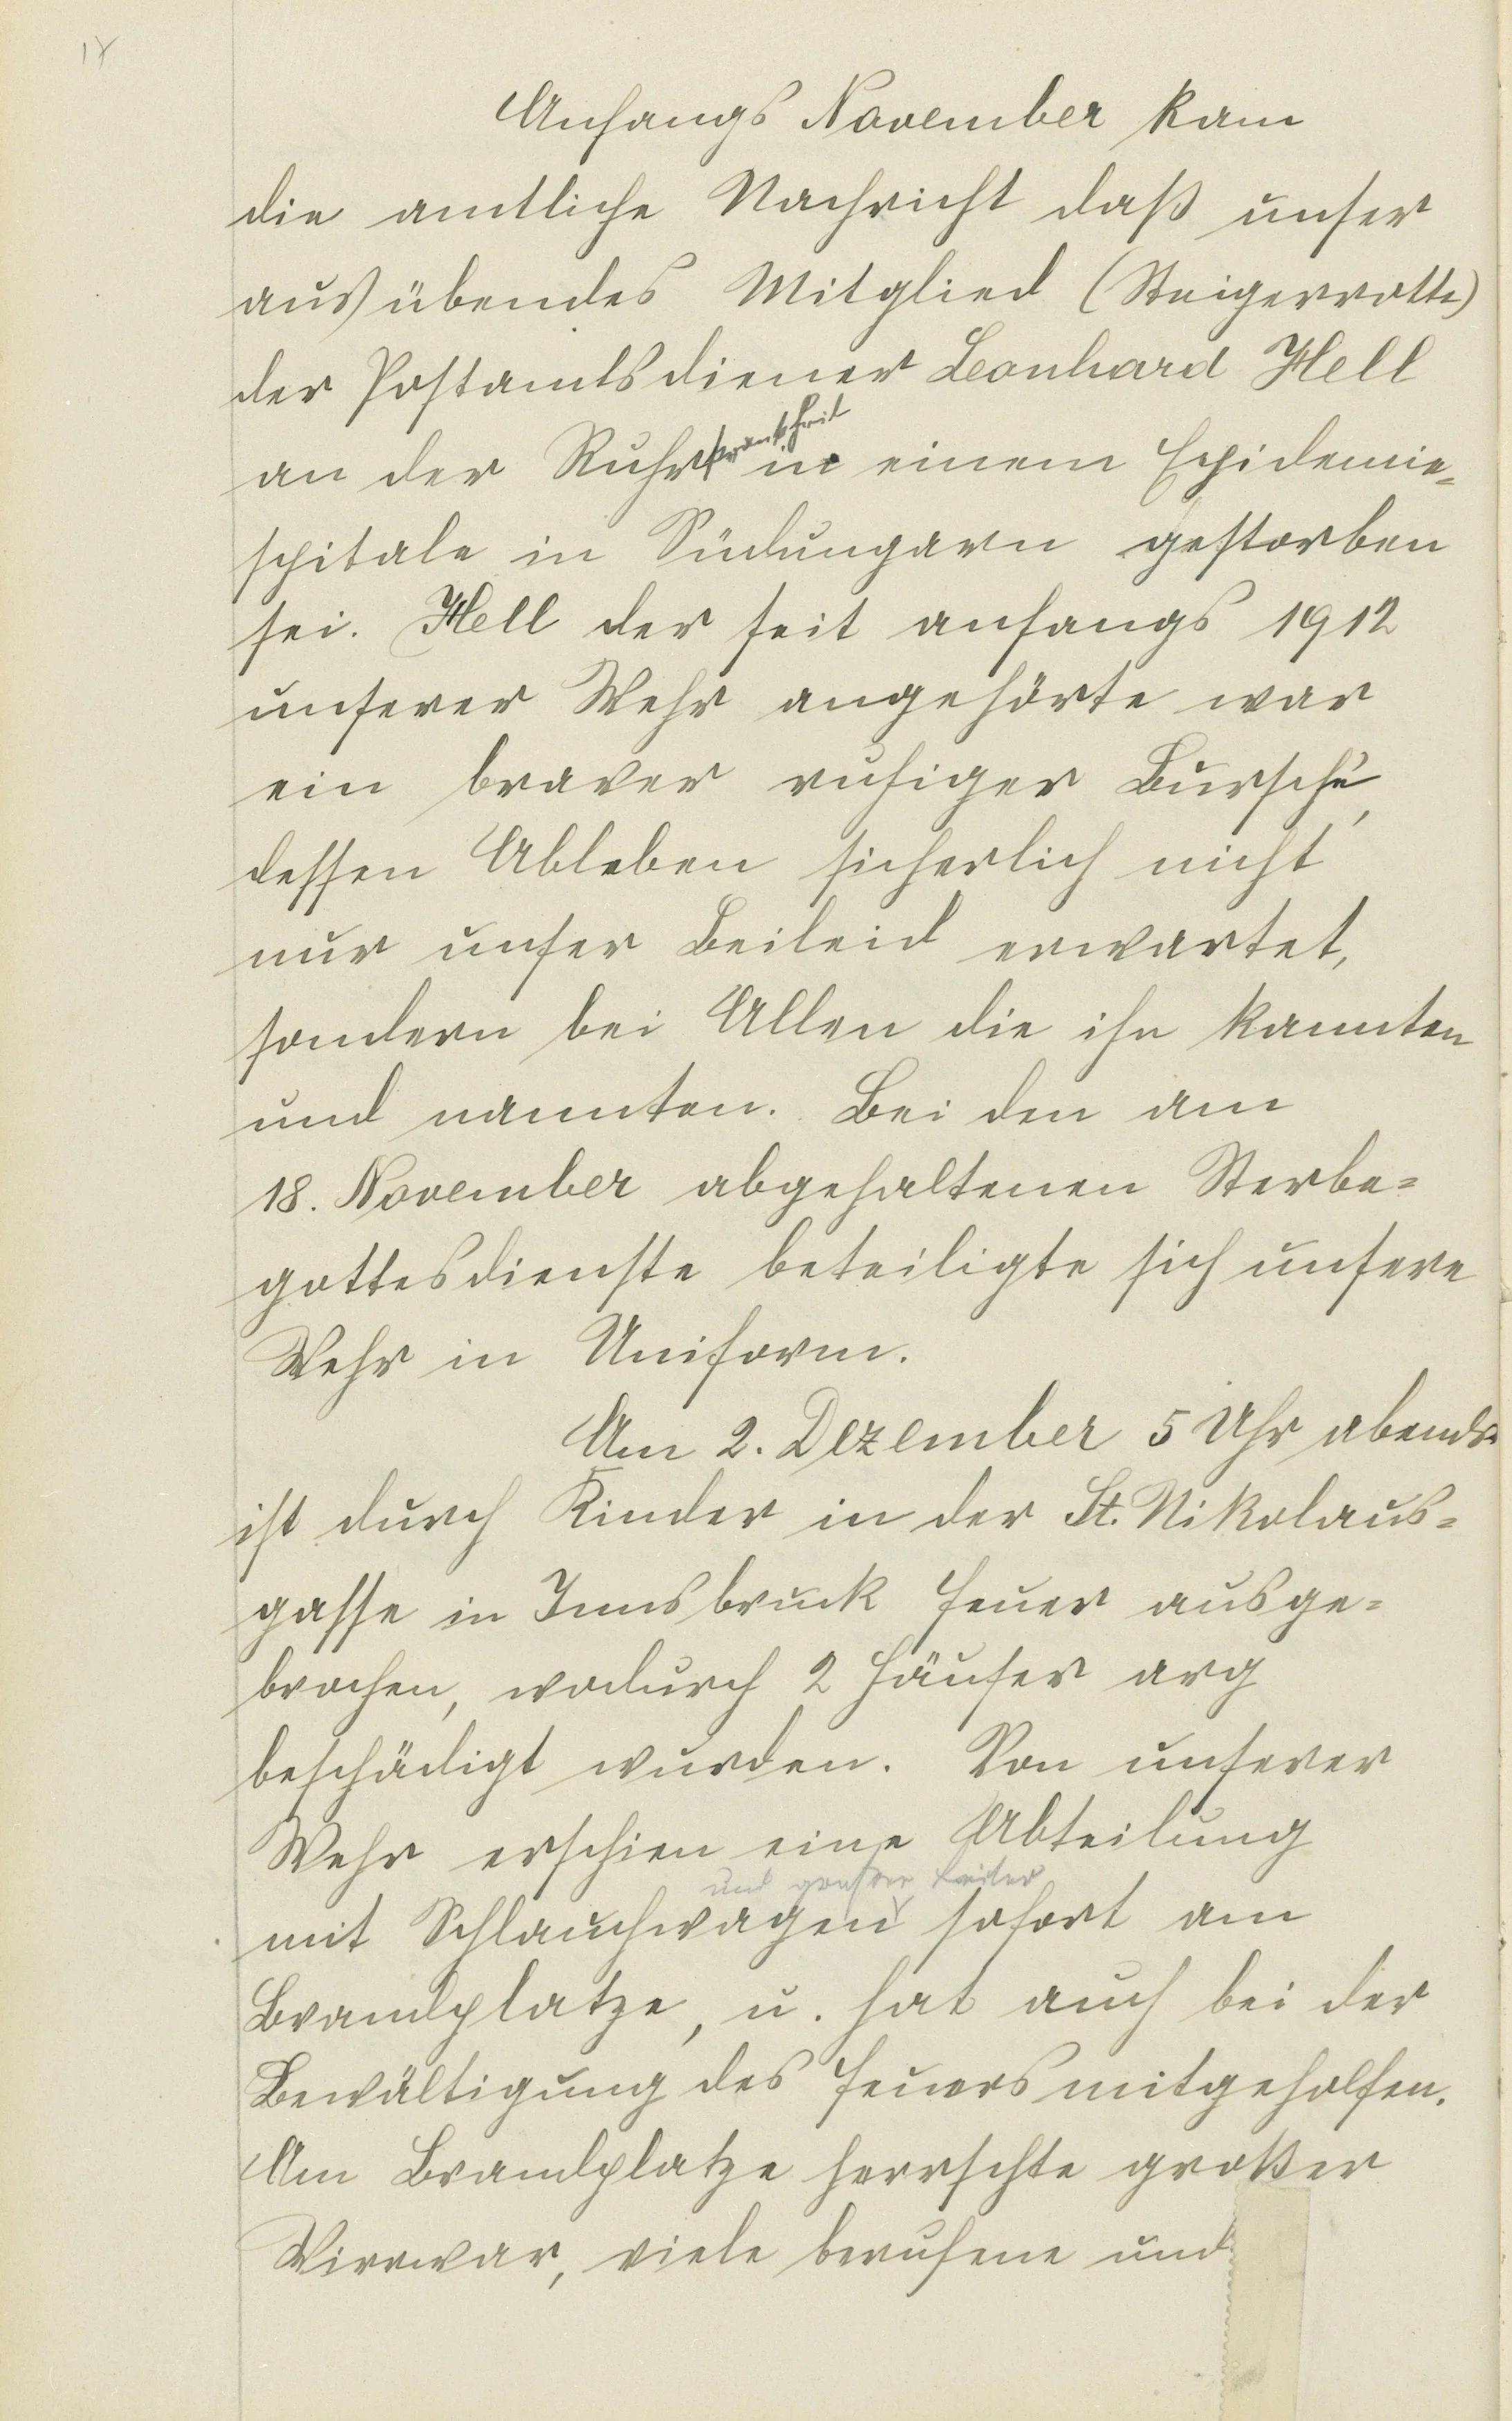 Anfangs November kam
die amtliche Nachricht daß unser
ausübendes Mitglied (Steigerrotte)
der Postamtsdiener Leonhard Hell
an der Ruhrkrankheit in einem Epidemie=
spitale in Südungarn gestorben
sei. Hell der seit anfangs 1912
unserer Wehr angehörte war
ein braver ruhiger Bursche,
dessen Ableben sicherlich nicht
nur unser Beileid erwartet,
sondern bei Allen die ihn kannten
und nannten. Bei den am
18. November abgehaltenen Sterbe=
gottesdienste beteiligte sich unsere
Wehr in Uniform.
Am 2. Dezember 5 Uhr abends
ist durch Kinder in der St. Nikolaus=
gasse in Innsbruck Feuer ausge=
brochen, wodurch 2 Häuser arg
beschädigt wurden. Von unserer
Wehr erschien eine Abteilung
und großer Leiter
mit Schlauchwagen sofort am
Brandplatze, u. hat auch bei der
Bewältigung des Feuers mitgeholfen.
Am Brandplatze herrschte großer
Wirrwar, viele berufene und